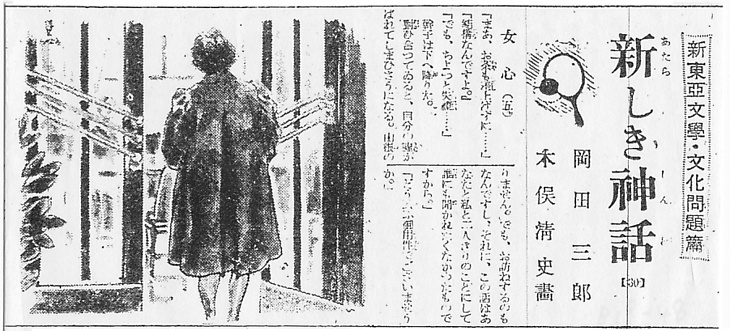 新東亞文學・文化問題篇
あたら
新しき神話
【30】
岡田三郎
木俣清史畫
女心（五）
「まあ、お茶も差上げずに……」
「結構なんですよ」
「でも、ちよつと失禮……」
幹子は下へ降りた。
ひ合つてゐると、自分の が
ばれてしまひさうになる。由根の
りません。でも、お訪ねするのも
なんですし、それに、この話はあ
なたと私と二人きりのことにして
誰にも聞かれたくなかつたもので
すから。」
御用件でございませう
か。」